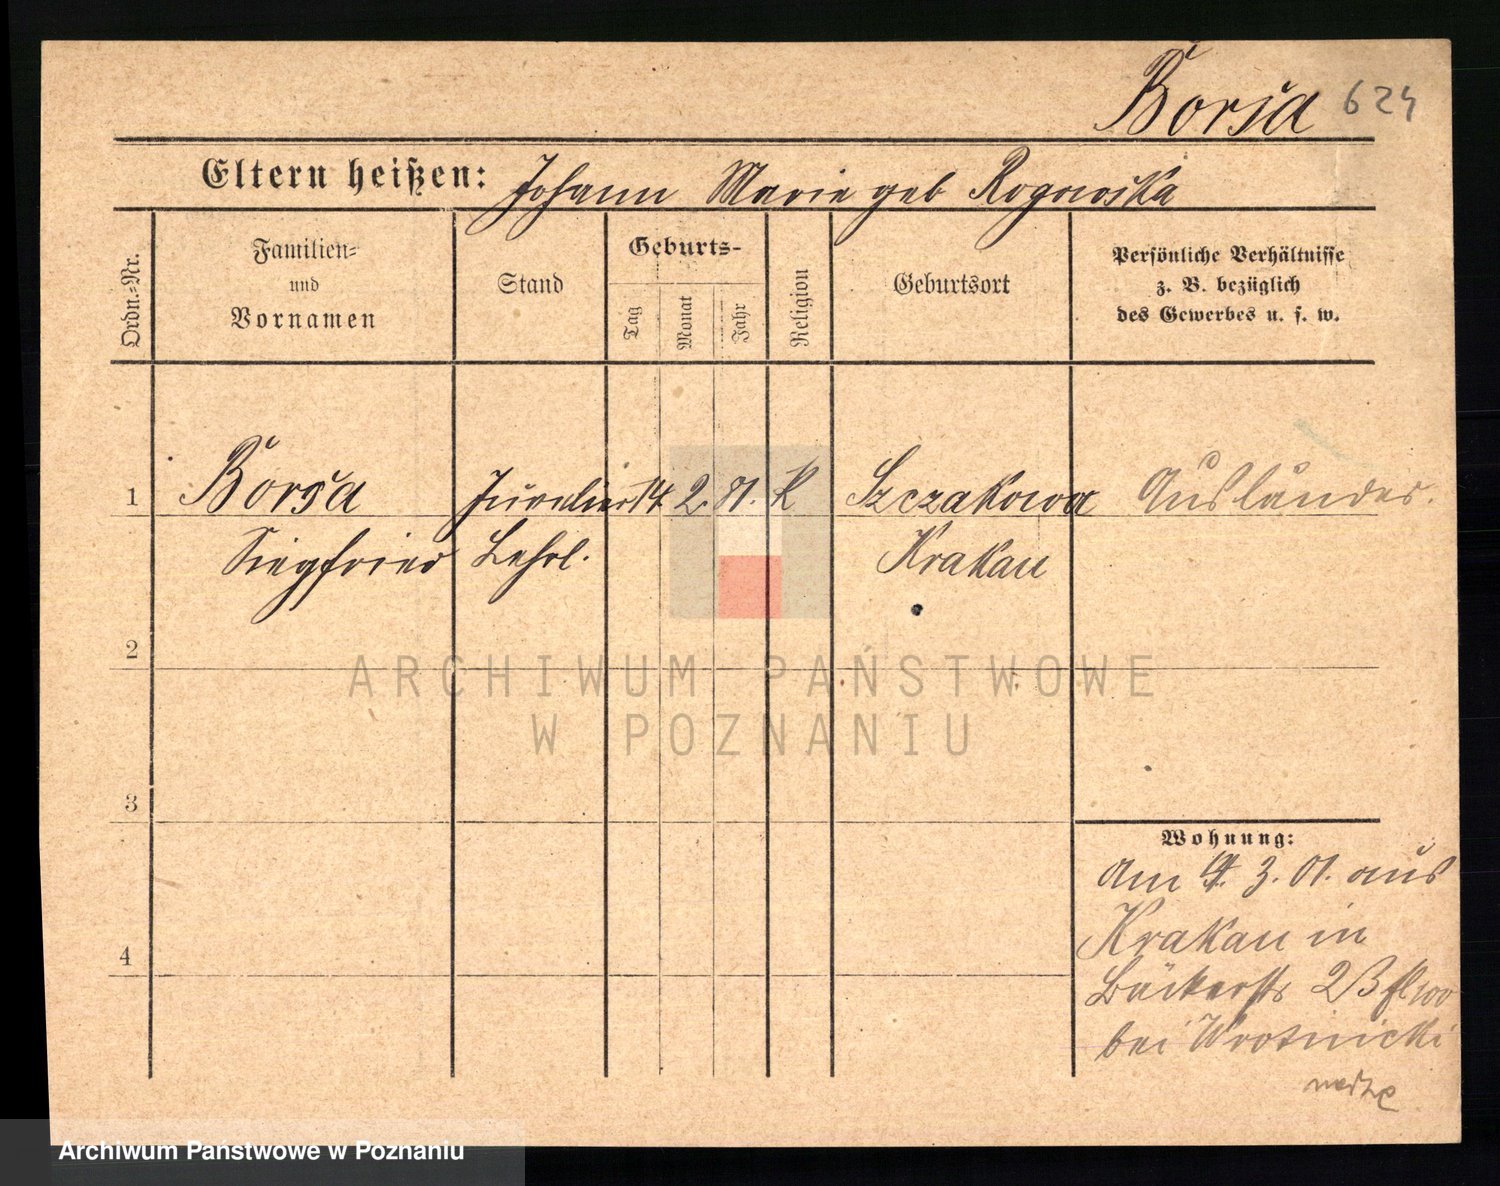 Borša 624
Eltern heißen: Johann Marie geb Rogowska
Ordn.-Nr.
Familien-
und
Vornamen
Stand
Geburts-
Tag
Monat
Jahr
Religion
Geburtsort
Persönliche Verhältnisse
z. B. bezüglich
des Gewerbes u. s. w.
1 Borša Juvelier 14. 2. 81. K Szczakowa Ausländer.
Siegfried Lehrl. Krakau
2
ARCHIWUM PAŃSTWOWE
W POZNANIU
3
Wohnung:
Am 4. 3. 01. aus
Krakau in
4
Bäckerstr 23
bei
Archiwum Państwowe w Poznaniu